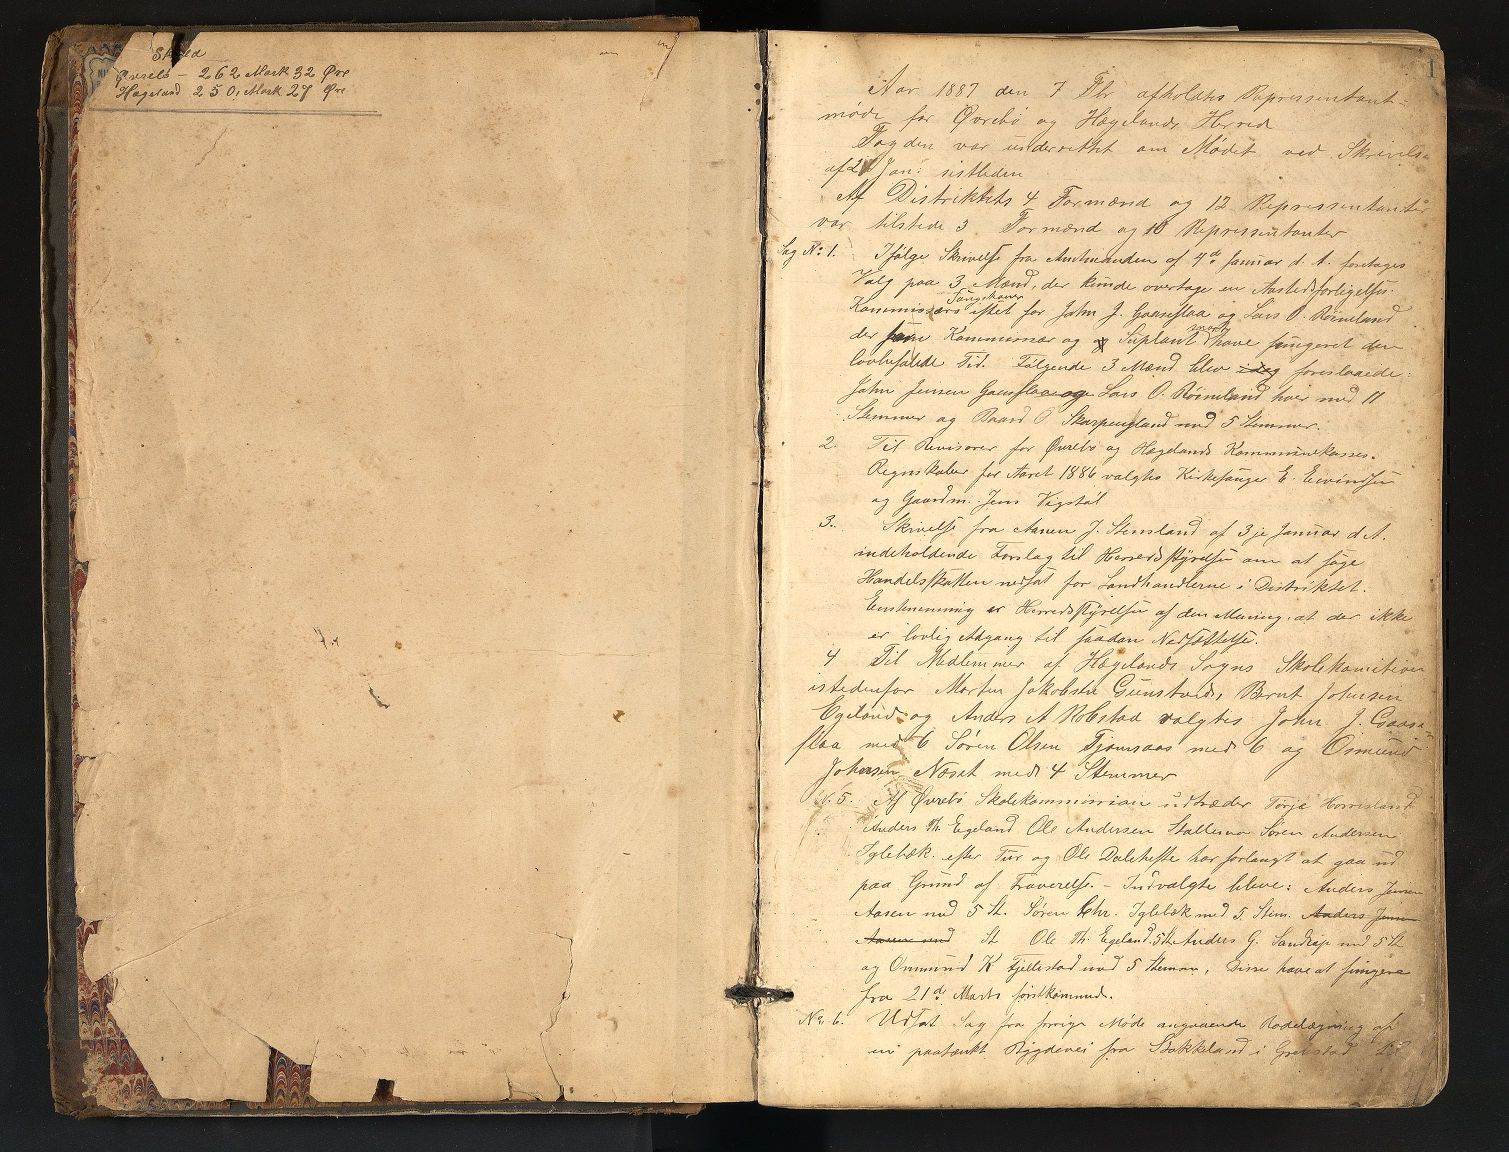 Øvrebø - 262 Mark 32 Øre
Hægeland 250, Mark 27 Øre
1
Aar 1887 den 7 Fbr afholdtes Repressentant-
møde for Øvrebø og Hægelands Herred
Fogden var underrettet om Mødet ved Skrivelse
af 2 Jan: sistleden
Af Distriktets 4 Formænd og 12 Repressentanter
var tilstede 3 Formænd og 10 Repressentanter
Sag No 1. Ifølge Skrivelse fra Amtmanden af 4de Januar d. A. foretages
Valg paa 3 Mænd, der kunde overtage en Aastedsforligelses-
Kommissærs efter for John J. Gaaseflaa og Lars O. Røineland
der som Kommissær og Suplant have fungeret den
lovbefalede Tid. Følgende 3 Mænd blev idag foreslaaede:
John Jensen Gaaseflaa og Lars O. Røineland hver med 11
Stemmer og Baard O Skarpengland med 5 Stemmer.
2. Til Revisorer for Øvrebø og Hægelands Kommunekasses-
Regnskaber for Aaret 1886 valgtes Kirkesanger E. Eivindsen
og Gaardm. Jens Vigstøl
3. Skrivelse fra Aanen J. Stensland af 3je Januar d. A.
indeholdende Forslag til Herredsstyrelsen om at søge
Handelsskatten nedsat for Landhandlerne i Distriktet.
Enstemmig er Herredsstyrelsen af den Mening, at der ikke
er lovlig Adgang til saadan Nedsættelse.
4 Til Medlemmer af Hægelands Sogns Skolekomiteen
istedenfor Morten Jakobsen Gunstveds, Bernt Johnsen
Egeland og Anders A Robstad valgtes John J. Gaase
flaa med 6 Søren Olsen Tjomsaas med 6 og Osmund
Johnsen Næset med 4 Stemmer
No. 5. Af Øvrebø Skolekommission udtræder Torje Homesland
Anders Th. Egeland Ole Andersen Stallemo Søren Andersen
Iglebæk efter Tur og Ole Dalehefte har forlangt at gaa ud
paa Grund af Fraverelse. - Indvalgte bleve: Anders Jensen
Aasen med 5 St. Søren Chr. Iglebæk med 5 Stem. Anders Jensen
Aasen med St Ole Th. Egeland 5 St. Anders G. Sandrap med 5 St
og Ommund K Fjellestad med 5 Stemmer, Disse have at fungere
fra 21de Marts førstkommende.
No. 6. Udsat Sag fra forrige Møde angaaende Rodelægning af
en paatænkt Bygdevei fra Stokkeland i Grebstad